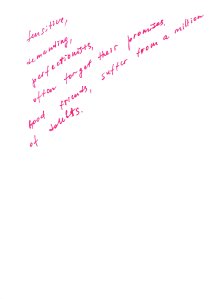 sensitive,
demanding,
perfectionists,
often forget their promises,
good friends, suffer from a million
of doubts.